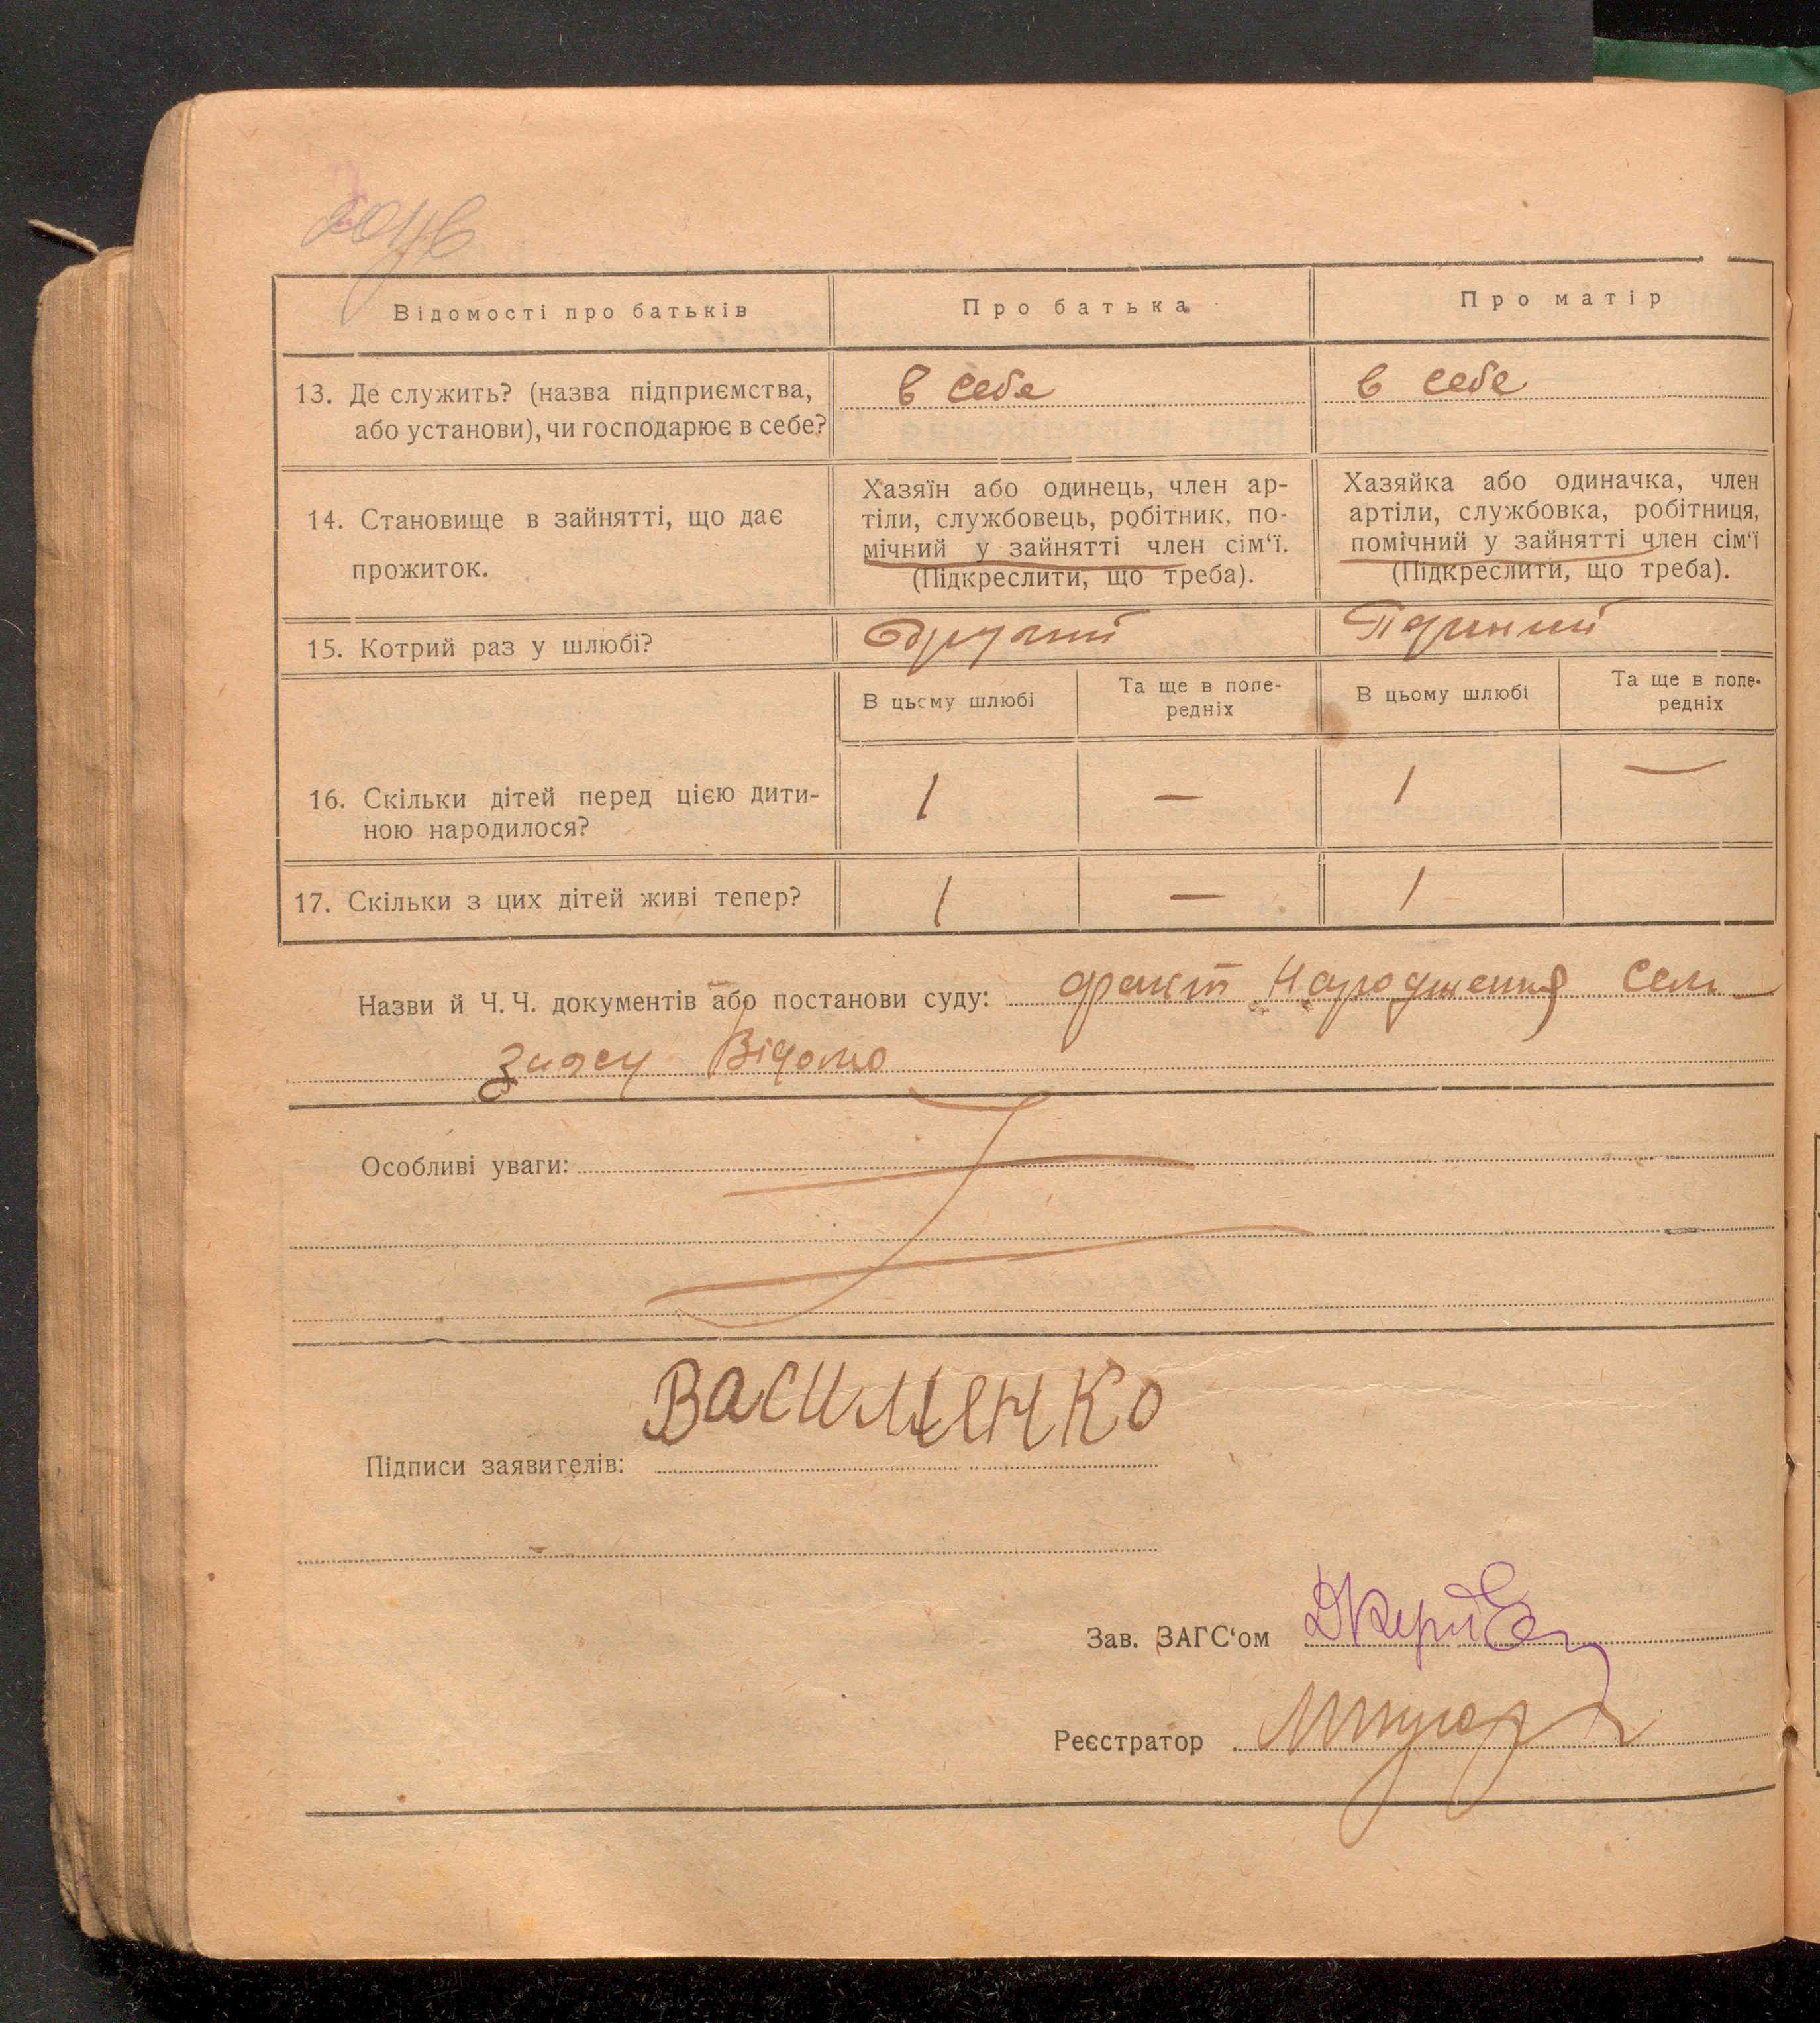 Відомості про батьків
Про батька
Про матір
13. Де служить? (назва підприємства,
або установи), чи господарює в себе?
в себе
в себе
14. Становище в зайнятті, що дає
прожиток.
Хазяїн або одинець, член ар-
тіли, службовець, робітник, по-
мічний у зайнятті член сім‘ї.
(Підкреслити, що треба).
Хазяйка або одиначка, член
артіли, службовка, робітниця,
помічний у зайнятті член сім‘ї
(Підкреслити, що треба).
15. Котрий раз у шлюбі?
В цьому шлюбі
Та ще в попе-
редніх
В цьому шлюбі
Та ще в попе-
редніх
16. Скільки дітей перед цією дити-
ною народилося?
1 — 1 —
17. Скільки з цих дітей живі тепер?
1 — 1
Назви й Ч. Ч. документів або постанови суду: факт Народження Сель
Відомо
Особливі уваги:
Василенко
Підписи заявителів:
Зав. ЗАГС‘ом
Реєстратор